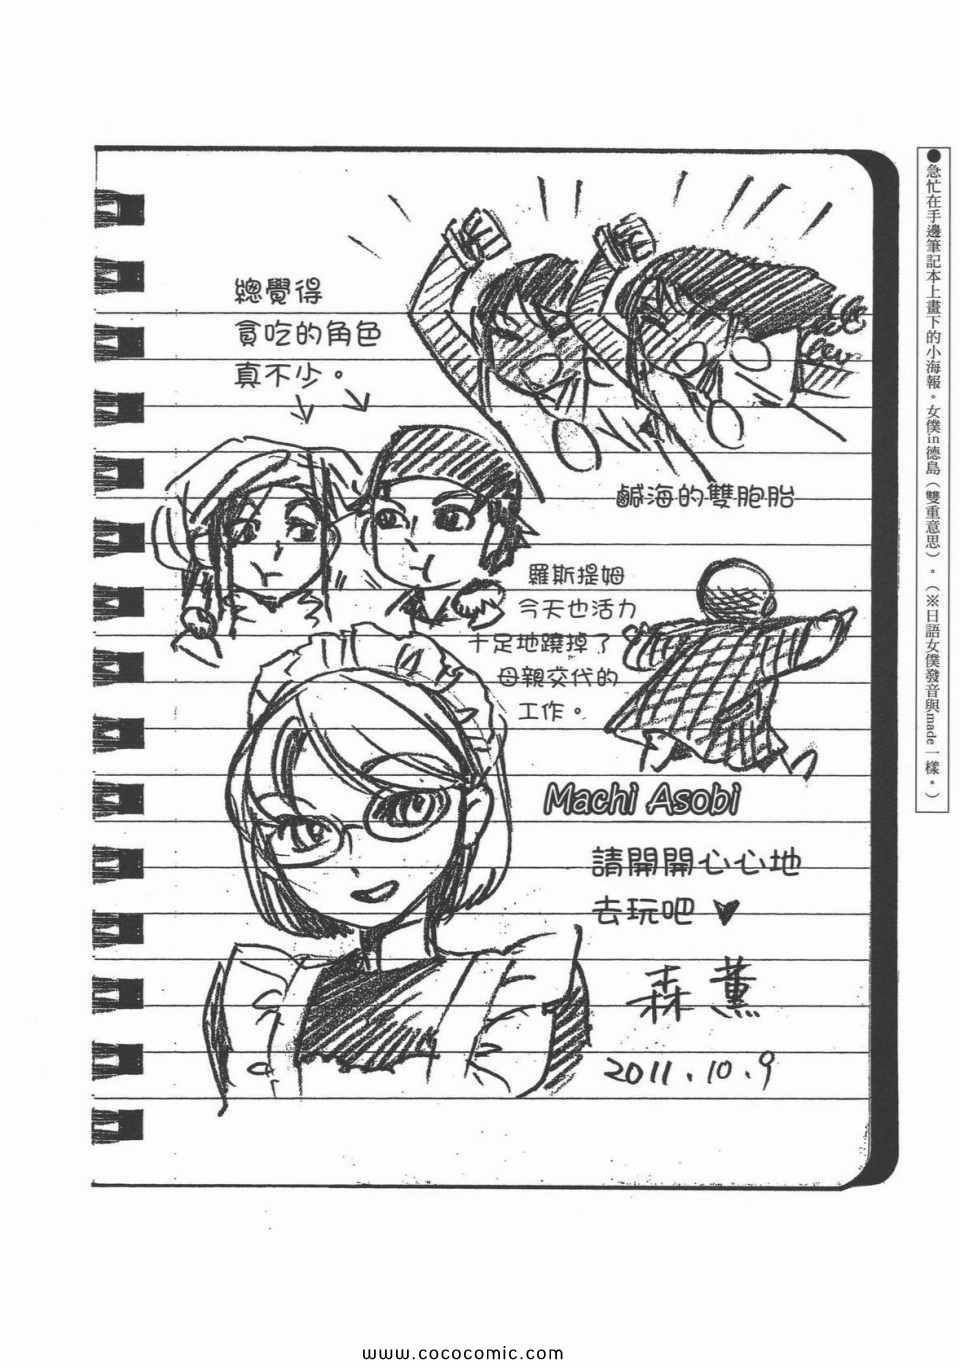 ●急忙在手邊筆記本上畫下的小海報。女僕in德島（雙重意思）。（※日語女僕發音與made一樣。）
總覺得
貪吃的角色
真不少。
鹹海的雙胞胎
羅斯提姆
今天也活力
十足地蹺掉了
母親交代的
工作。
Machi Asobi
請開開心心地
去玩吧♥
森薫
2011.10.9
www.cococomic.com